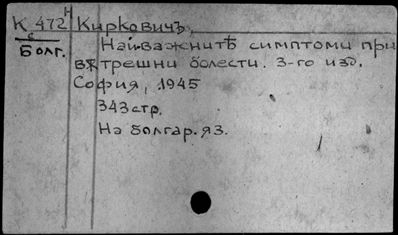 К 472 н Киркович.
с
Болг. Най-важнитѣ симптоми при
вѫтрешни болести. 3-го изд.
София, 1945
343 стр.
На болгар. яз.